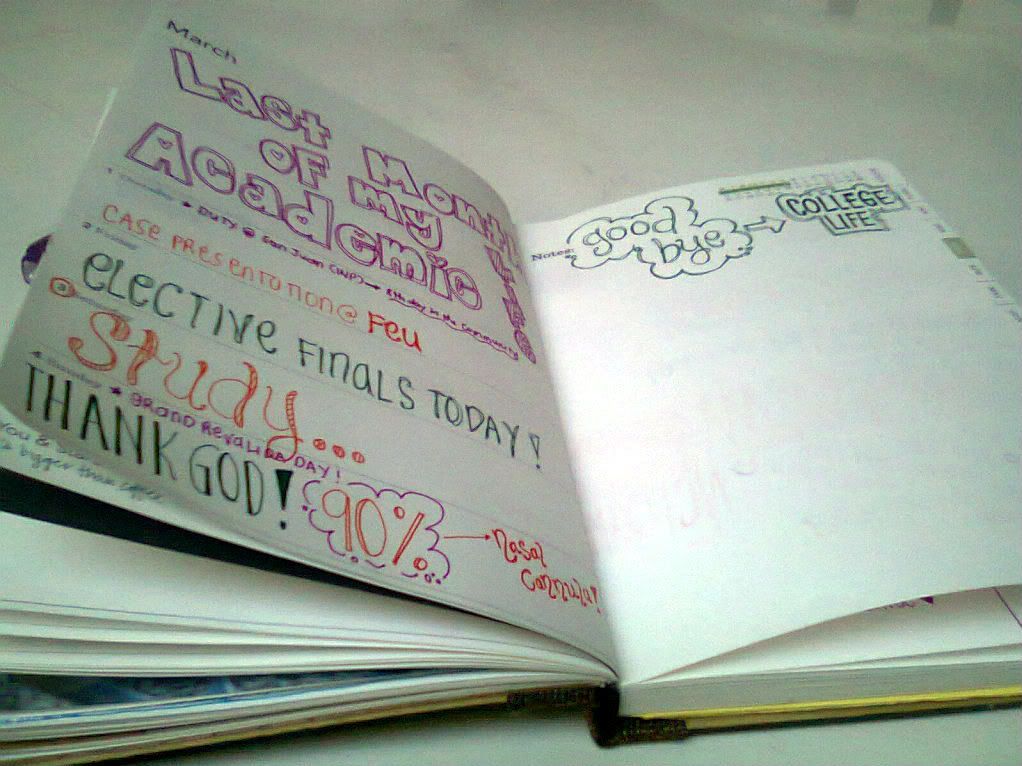 March
Last Month
of my
Academic
Life!
1 Thursday ★ Duty @ San Juan (WP) → 8th day in the community
2
CASE PRESENTATION @ FEU
ELECTIVE FINALS TODAY!
3
Study...
4 Sunday ★ GRAND REVALIDA DAY!
THANK GOD!
90% → Nasal
Cannula!
bigger than
Notes:
good
bye →
COLLEGE
LIFE